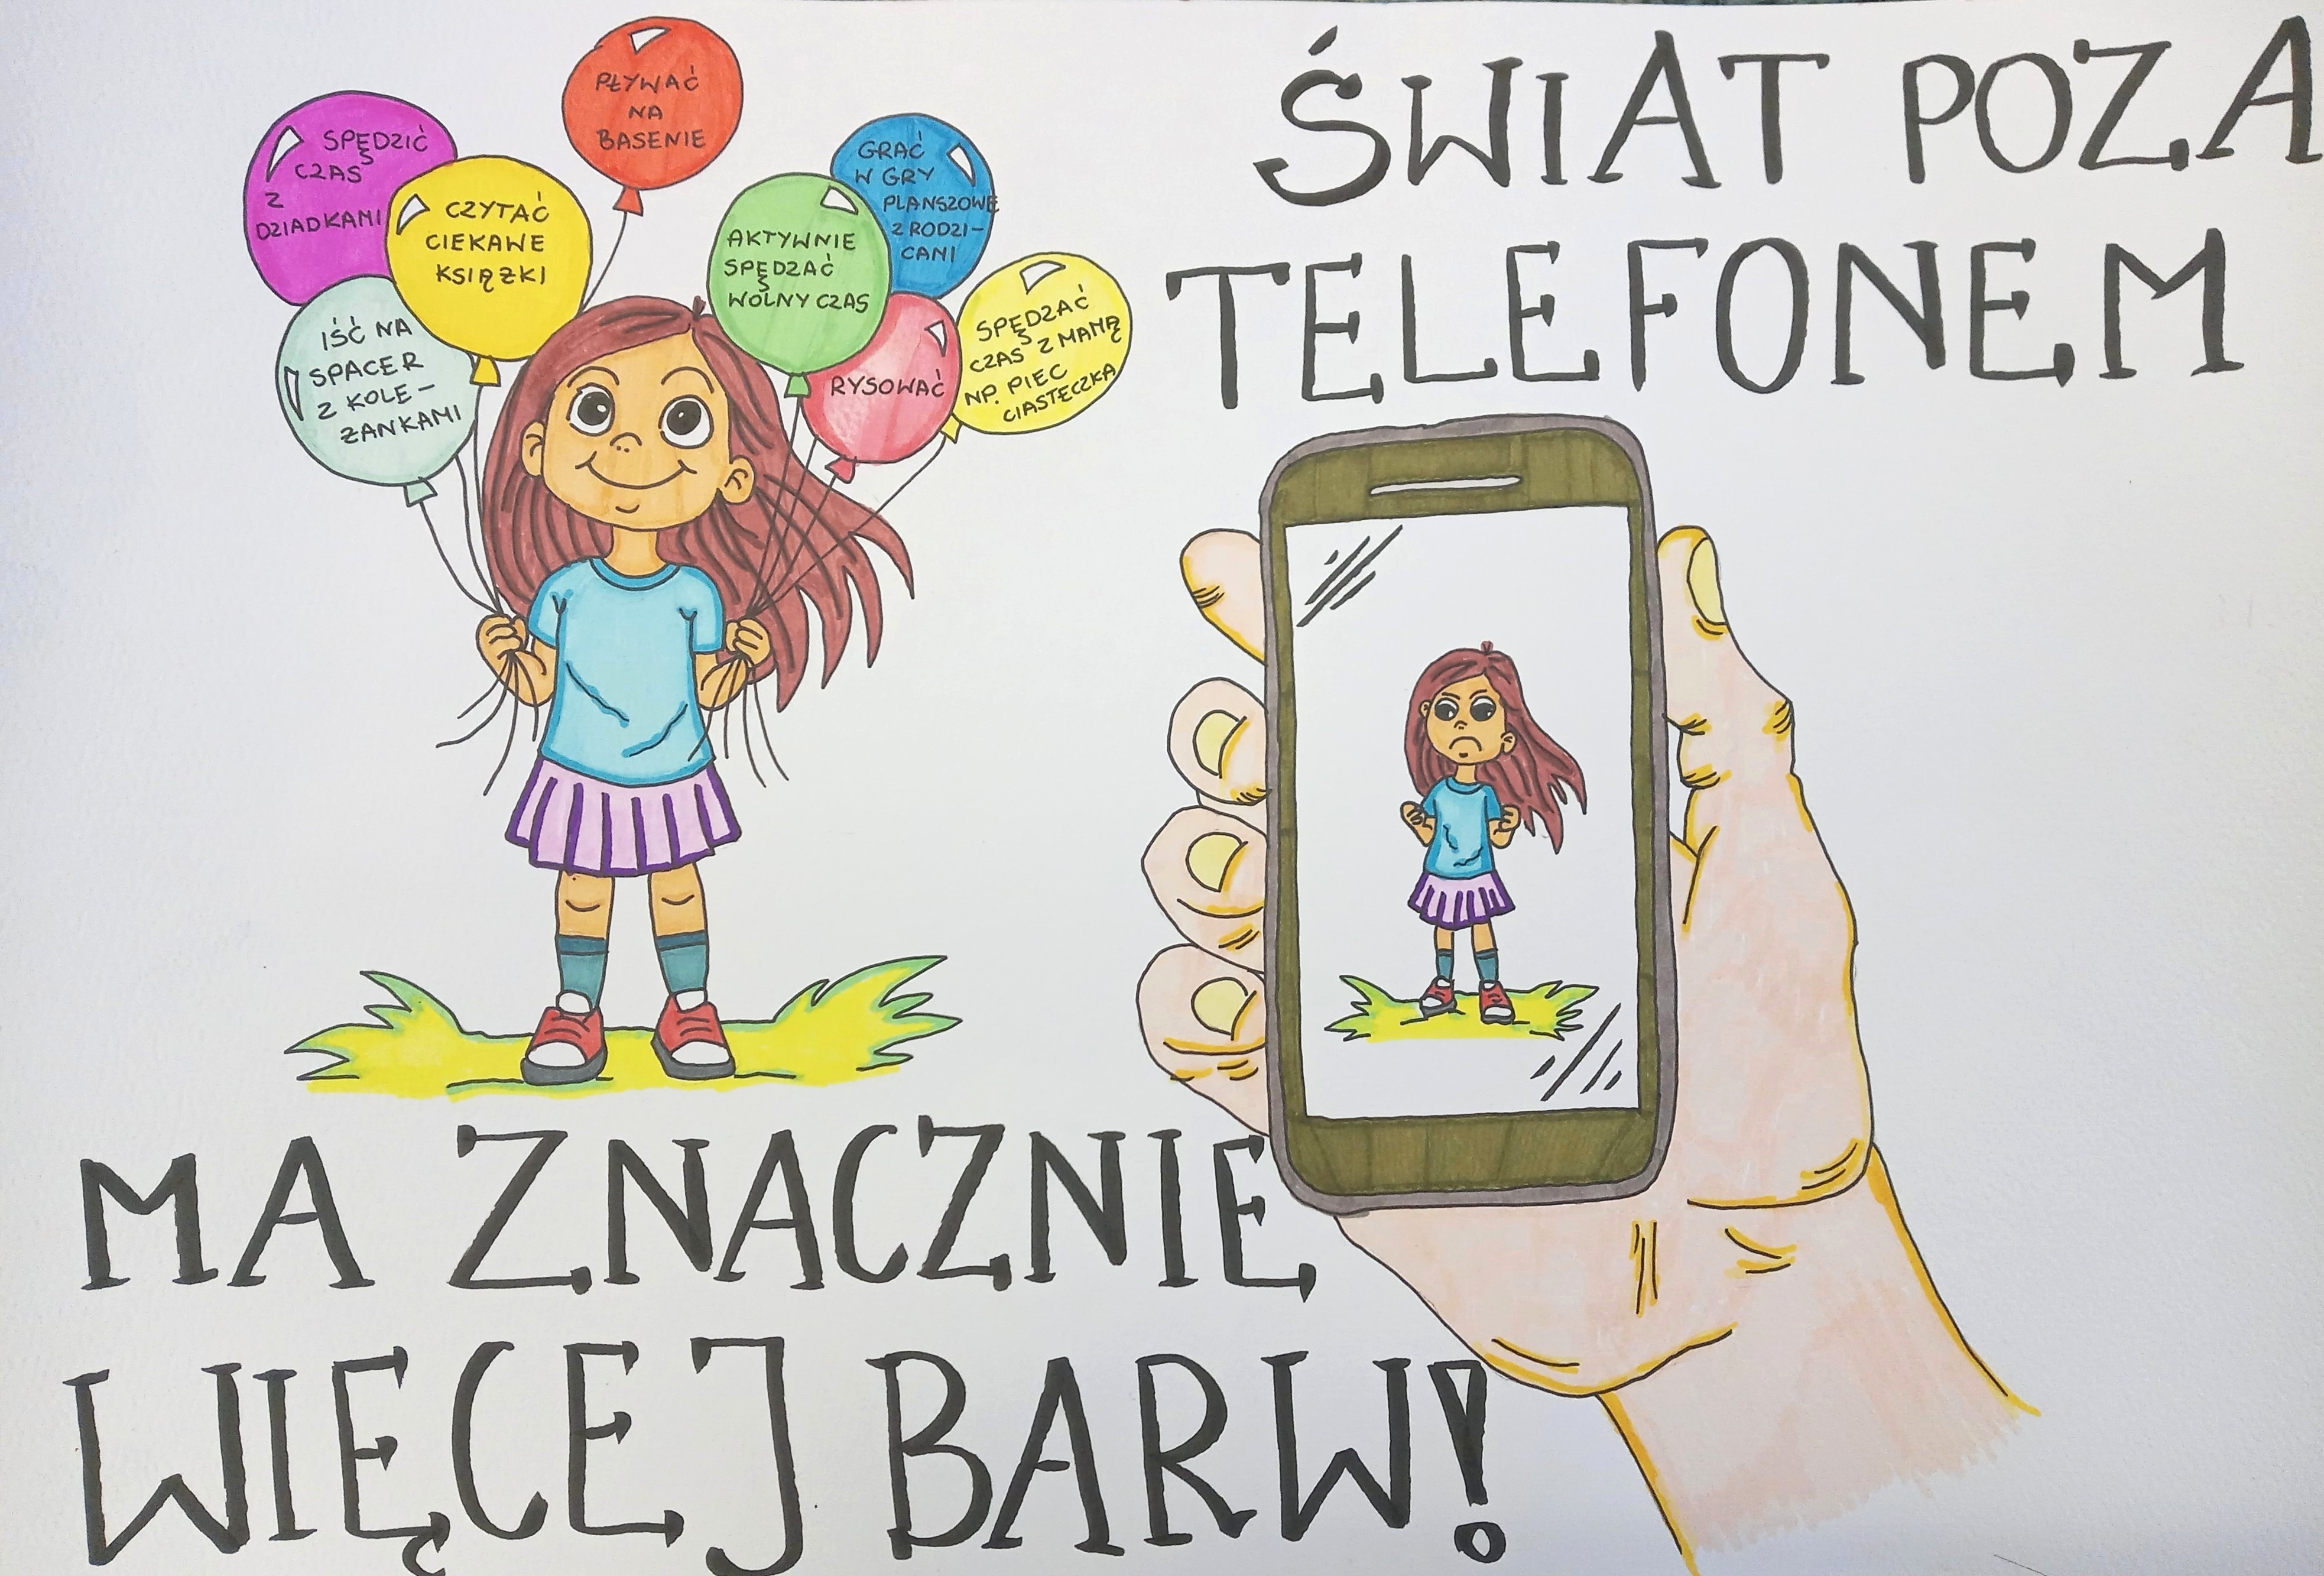 ŚWIAT POZA
TELEFONEM
PŁYWAĆ
NA
BASENIE
SPĘDZIĆ
CZAS
Z
DZIADKAMI
CZYTAĆ
CIEKAWE
KSIĄŻKI
IŚĆ NA
SPACER
Z KOLE-
ŻANKAMI
GRAĆ
W GRY
PLANSZOWE
Z RODZI-
CAMI
AKTYWNIE
SPĘDZAĆ
WOLNY CZAS
RYSOWAĆ
SPĘDZAĆ
CZAS Z MAMĄ
NP. PIEC
CIASTECZKA
MA ZNACZNIE
WIĘCEJ BARW!